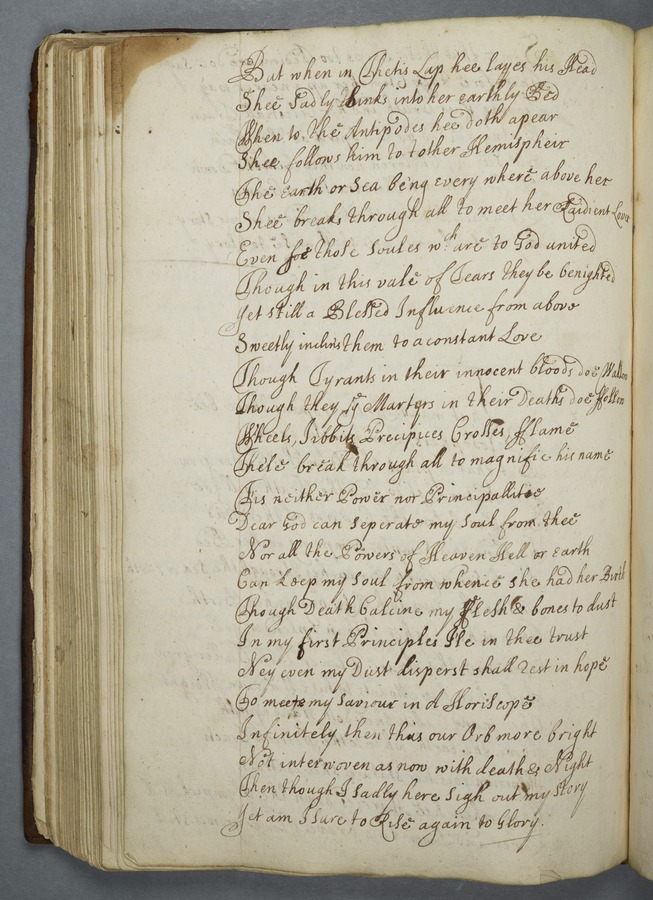 But when in Thetis Lap hee layes his Head
Shee Sadly Sinks into her earthly Bed
When to the Antipodes hee doth apear
Shee follows him to tother Hemispheir
The earth or Sea being every where above her
Shee breaks through all to meet her Raidient Lover
Even soe those soules wch are to God united
Though in this vale of Tears they be benighted
Yet still a Blessed Influence from above
Sweetly inclins them to a constant Love
Though Tyrants in their innocent bloods doe Wallow
Though they ye Martyrs in their Deaths doe ffollow
Wheels, Jibbits Precipices Crosses fflame
These break through all to magnifie his name
Tis neither Power nor Principallitie
Dear God can seperate my Soul from thee
Nor all the Powers of Heaven Hell or earth
Can keep my Soul from whence she had her Birth
Though Death Calcine my fflesh & bones to dust
In my first Principles I'le in thee trust
Ney even my Dust disperst shall rest in hope
To meete my Saviour in a Horiscope
Infinitely then this our Orb more bright
Not interwoven as now with death & Night
Then though I sadly here sigh out my Story
Yet am I sure to Rise again to Glory.